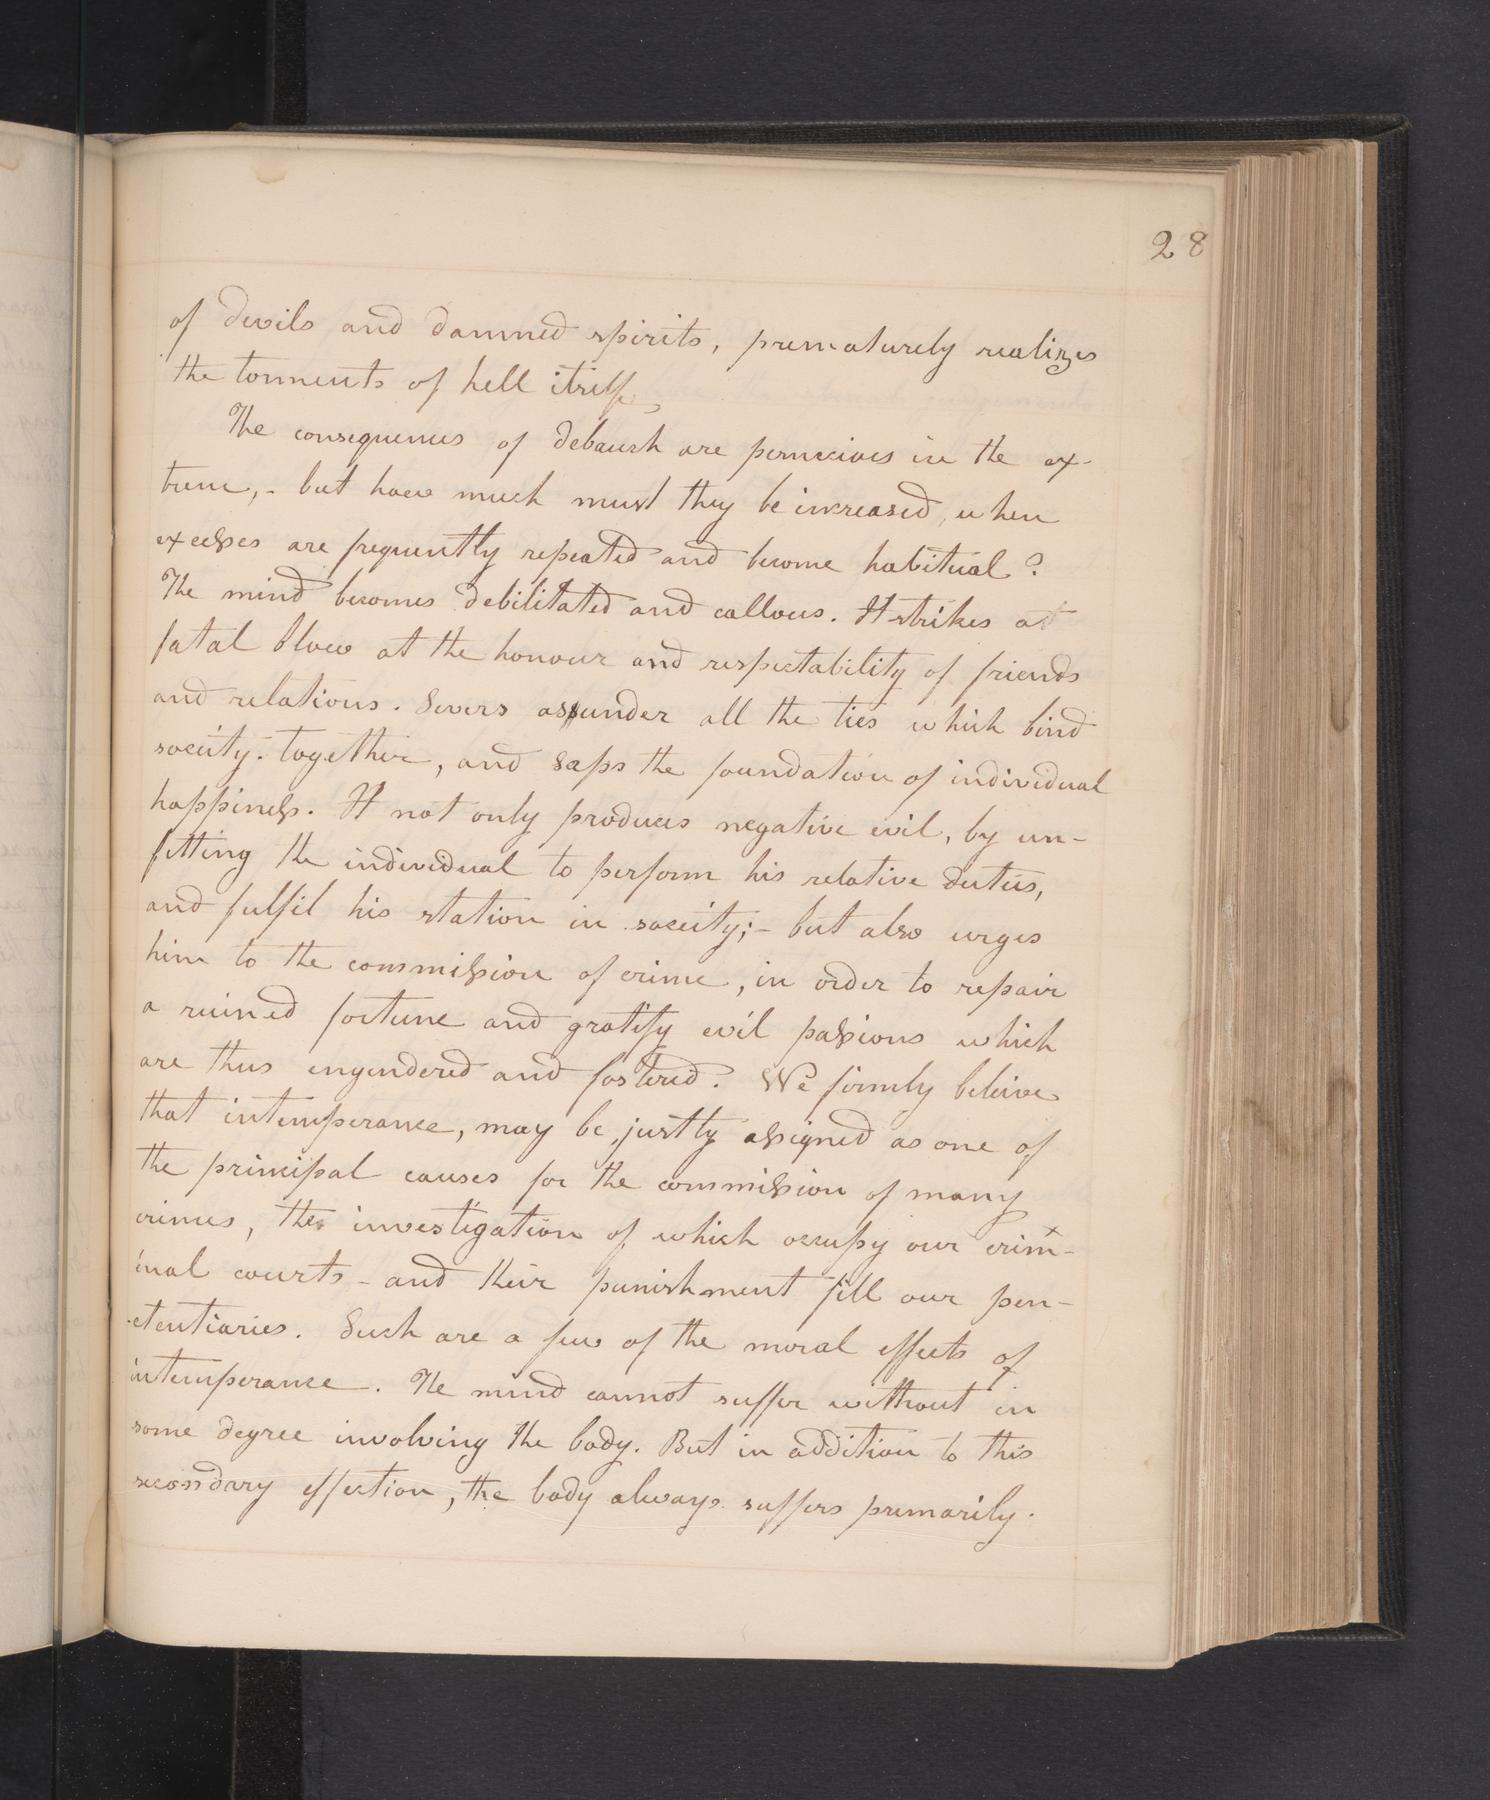 28
of devils and damned spirits, prematurely realizes
the torments of hell itself.
The consequences of debauch are pernicious in the ex-
treme,- but how much must they be increased, when
excesses are frequently repeated and become habitual?
The mind becomes debilitated and callous. It strikes at
fatal blow at the honour and respectability of friends
and relations. Severs assunder all the ties which bind
society together, and saps the foundation of individual
happiness. It not only produces negative evil, by un-
fitting the individual to perform his relative duties,
and fulfil his station in society;- but also urges
him to the commission of crime, in order to repair
a ruined fortune and gratify evil passions which
are thus engendered and fostered. We firmly beleive
that intemperance, may be justly assigned as one of
the principal causes for the commission of many
crimes, the investigation of which occupy our crim-
inal courts - and their punishment fill our pen-
etentiaries. Such are a few of the moral effects of
intemperance. The mind cannot suffer without in
some degree involving the body. But in addition to this
secondary affection, the body always suffers primarily.